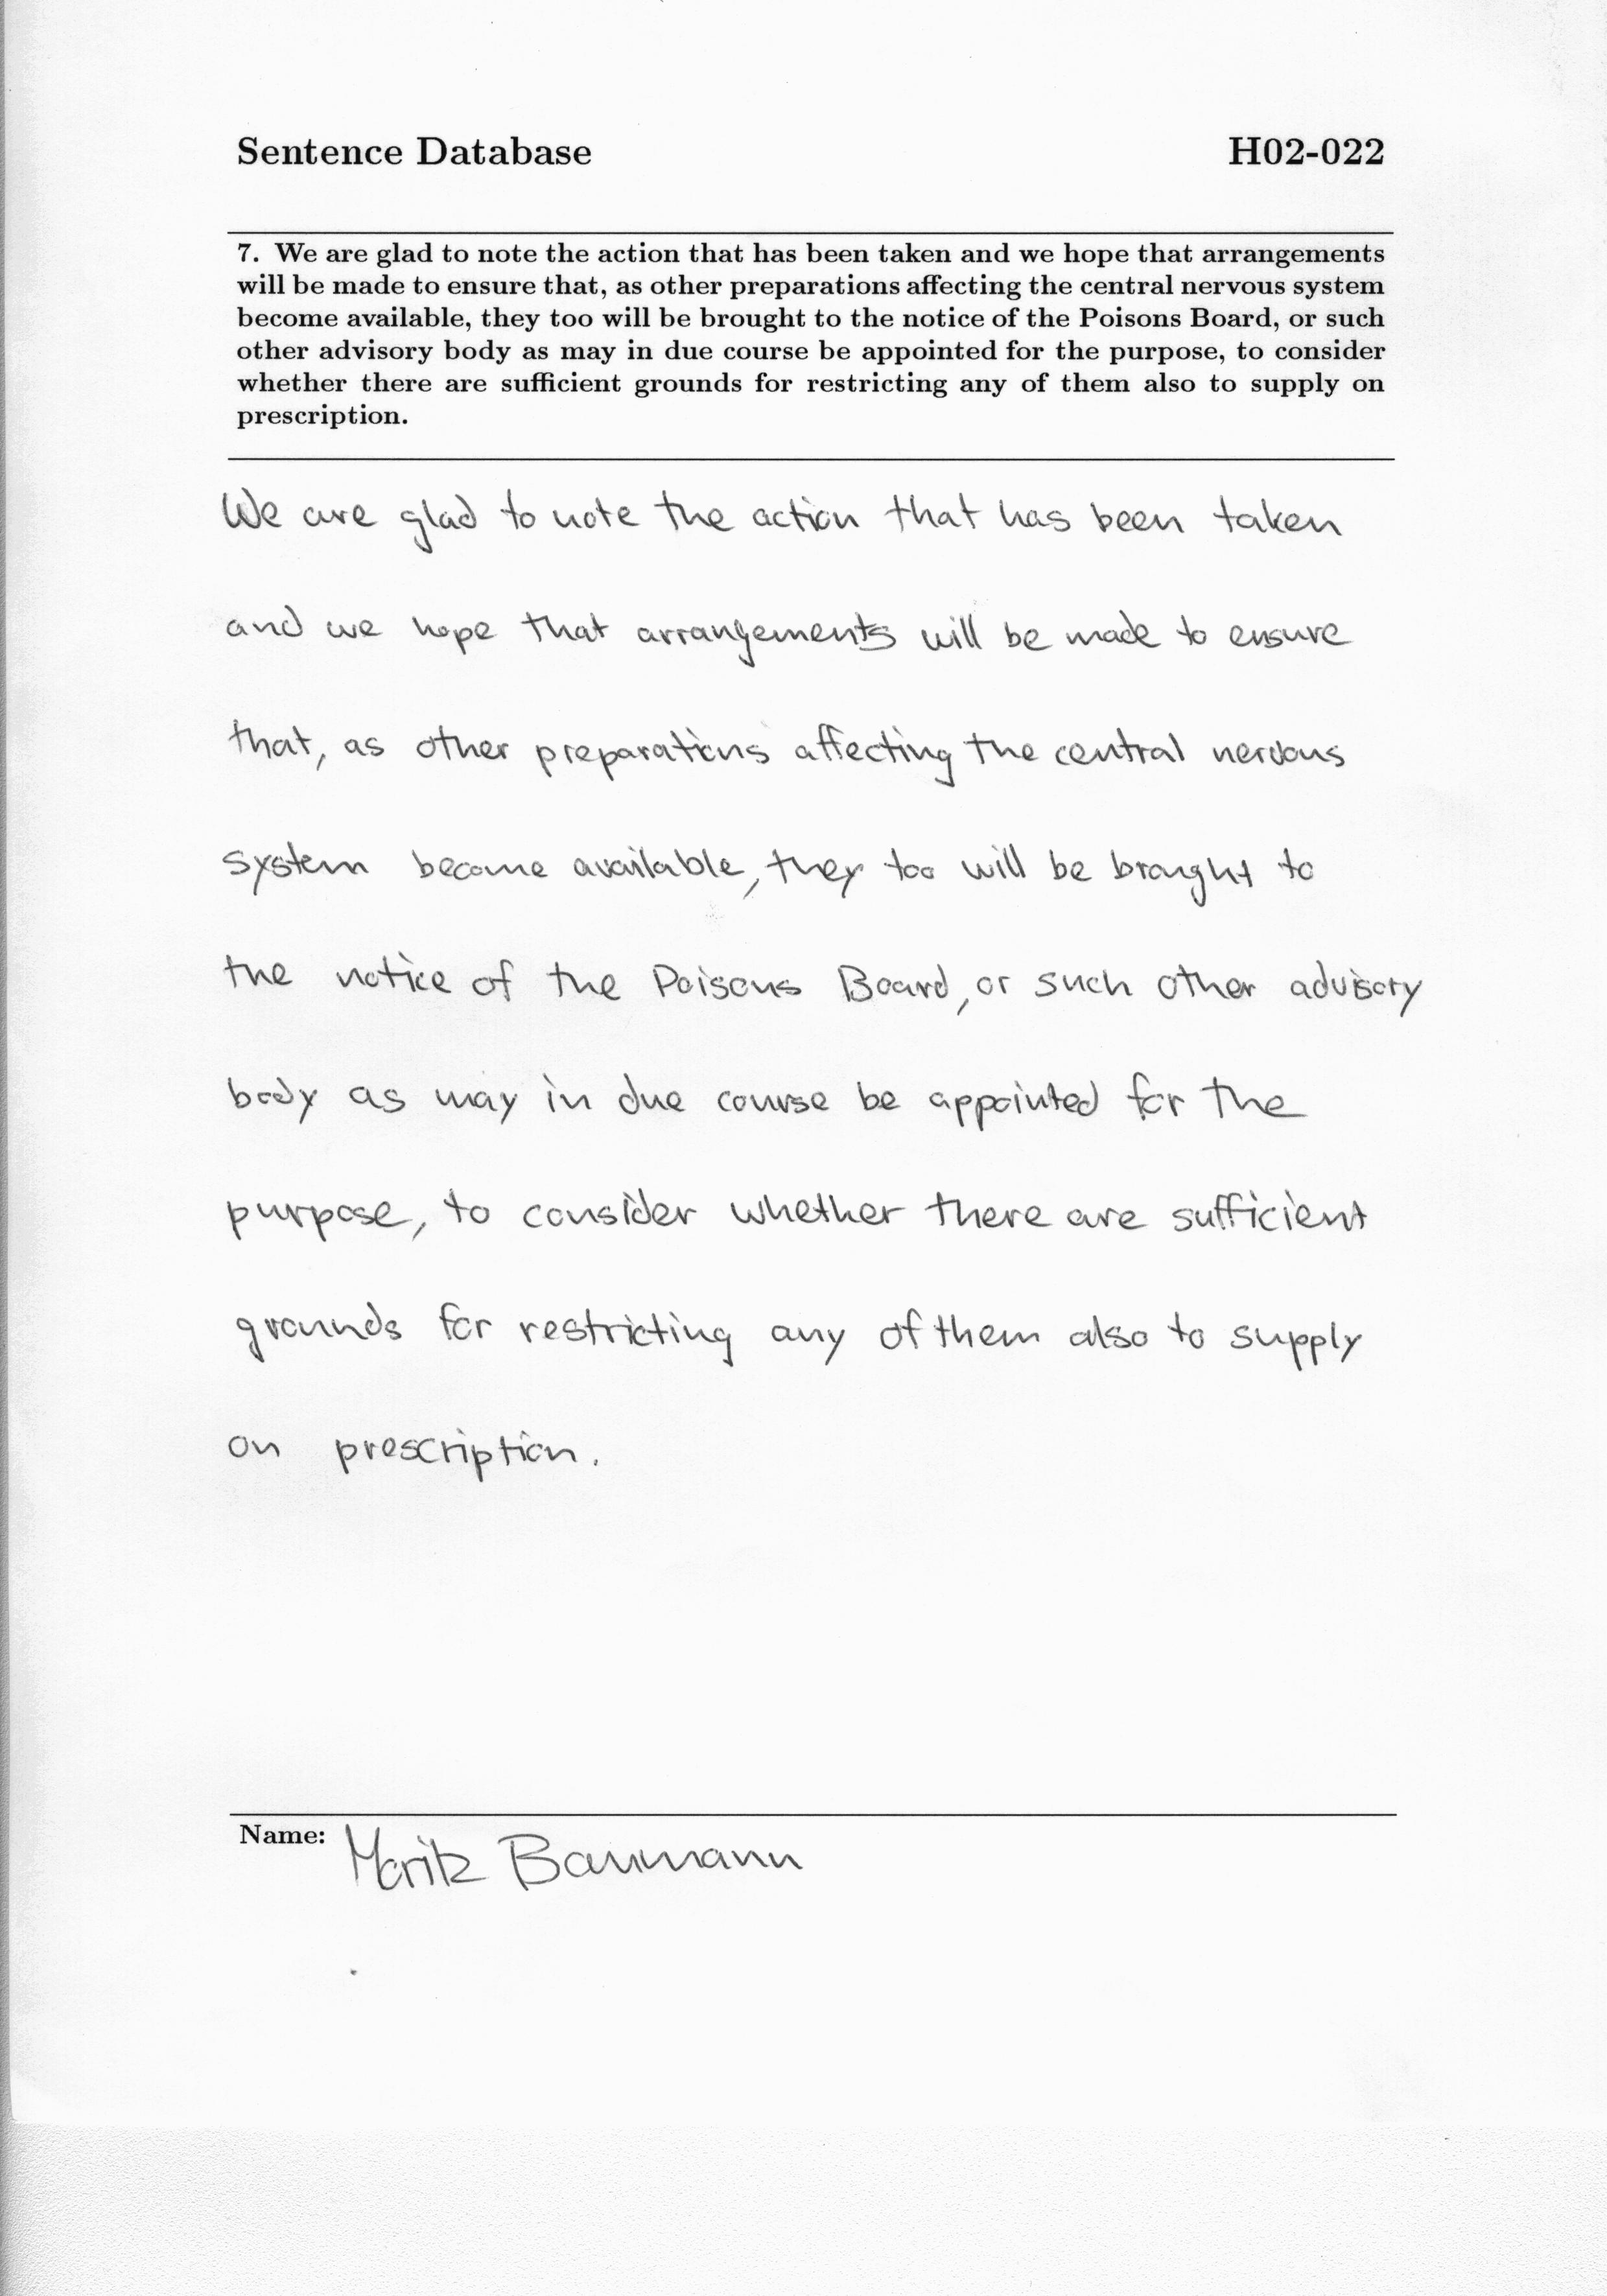 Sentence Database H02-022
7. We are glad to note the action that has been taken and we hope that arrangements
will be made to ensure that, as other preparations affecting the central nervous system
become available, they too will be brought to the notice of the Poisons Board, or such
other advisory body as may in due course be appointed for the purpose, to consider
whether there are sufficient grounds for restricting any of them also to supply on
prescription.
We are glad to note the action that has been taken
and we hope that arrangements will be made to ensure
that, as other preparations affecting the central nervous
system become available, they too will be brought to
the notice of the Poisons Board, or such other advisory
body as may in due course be appointed for the
purpose, to consider whether there are sufficient
grounds for restricting any of them also to supply
on prescription.
Name: Moritz Baumann